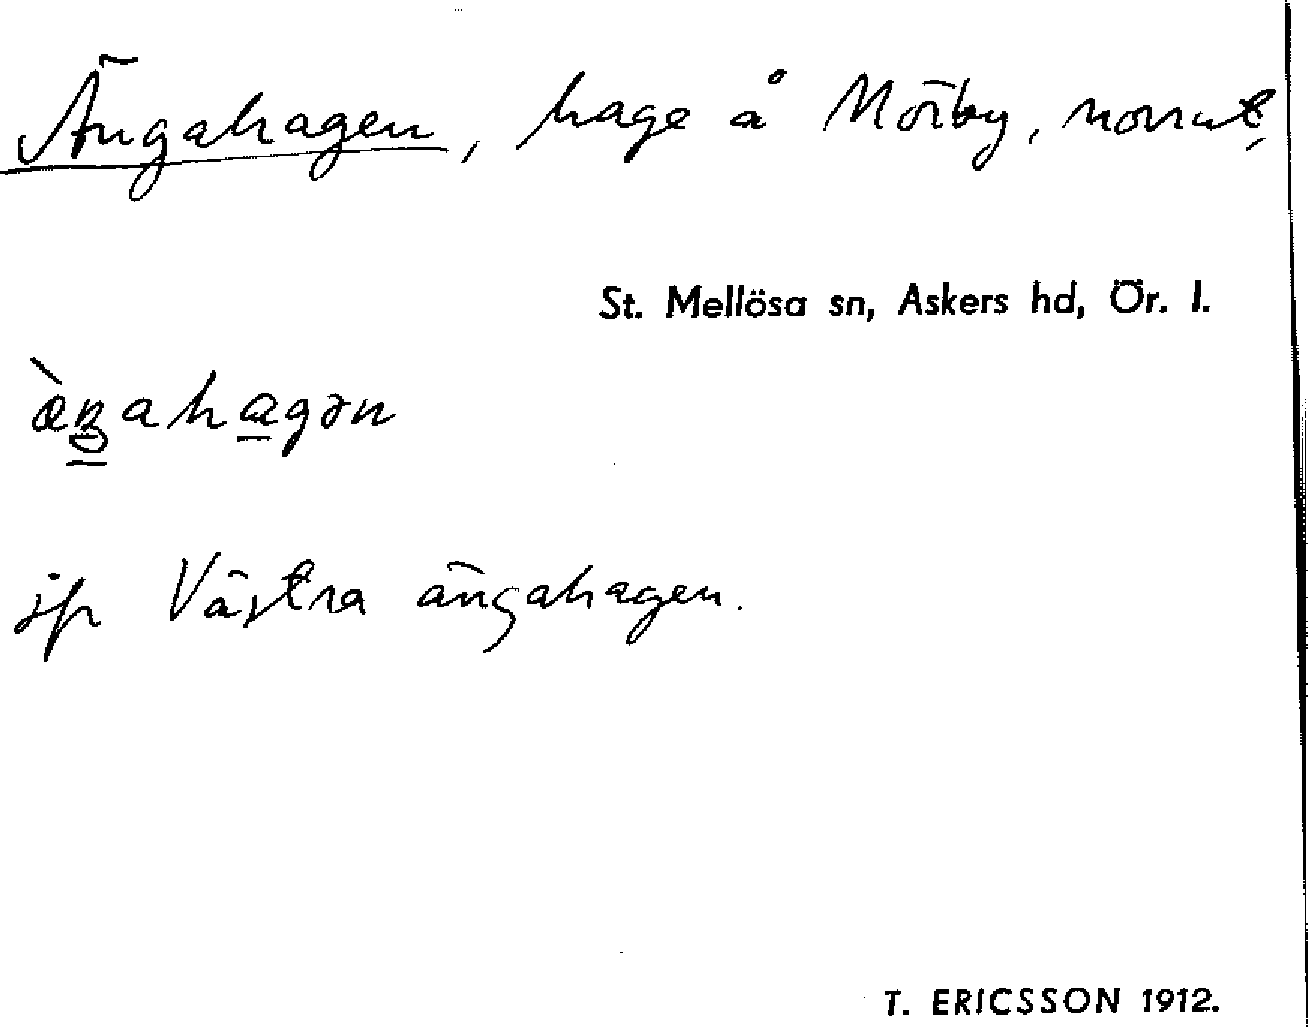 Ängahagen, hage å Mörby, norrut,
St. Mellösa sn, Askers hd, Ör. l.
æ̀ŋahagən
jfr Västra ängahagen.
T. ERICSSON 1912.